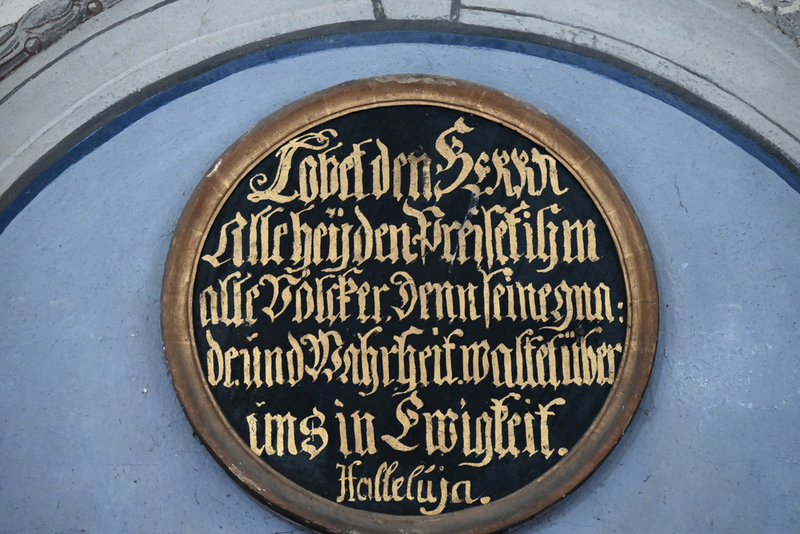 Lobet den HERRN
Alle heÿden Preiset ihm
alle Völcker, Denn seine gna:
de und Wahrheit waltet über
uns in Ewigkeit.
Hallelúja.